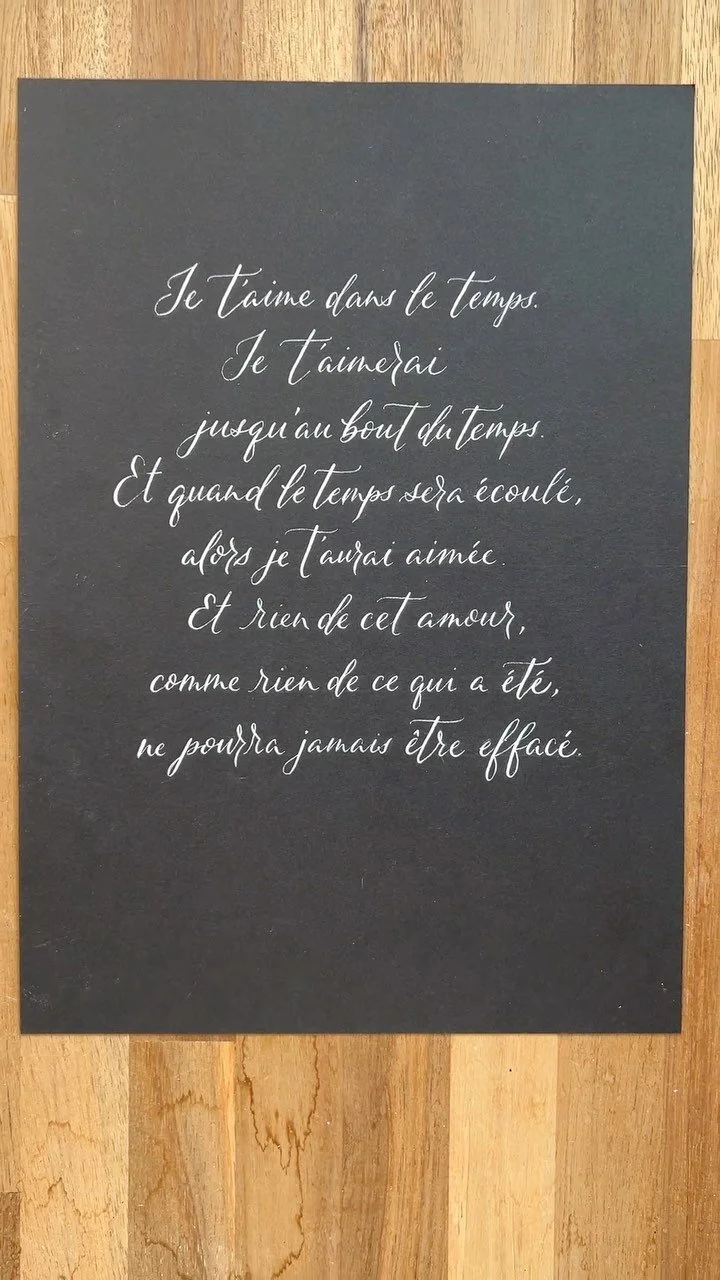 Je t'aime dans le temps.
Je t'aimerai
jusqu'au bout du temps.
Et quand le temps sera écoulé,
alors je t'aurai aimée.
Et rien de cet amour,
comme rien de ce qui a été,
ne pourra jamais être effacé.